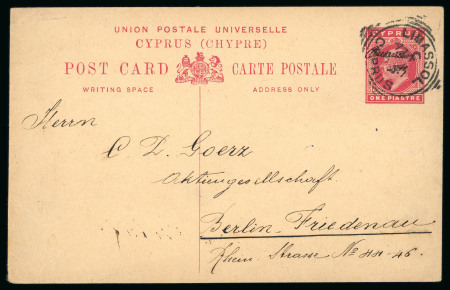 UNION POSTALE UNIVERSELLE
CYPRUS (CHYPRE)
POST CARD CARTE POSTALE
WRITING SPACE ADDRESS ONLY
CYPRUS
ONE PIASTRE
LIMASSOL
CYPRUS
Herrn
C. P. Goerz
Aktiengesellschaft.
Berlin-Friedenau
Rhein-Strasse No 44-46.